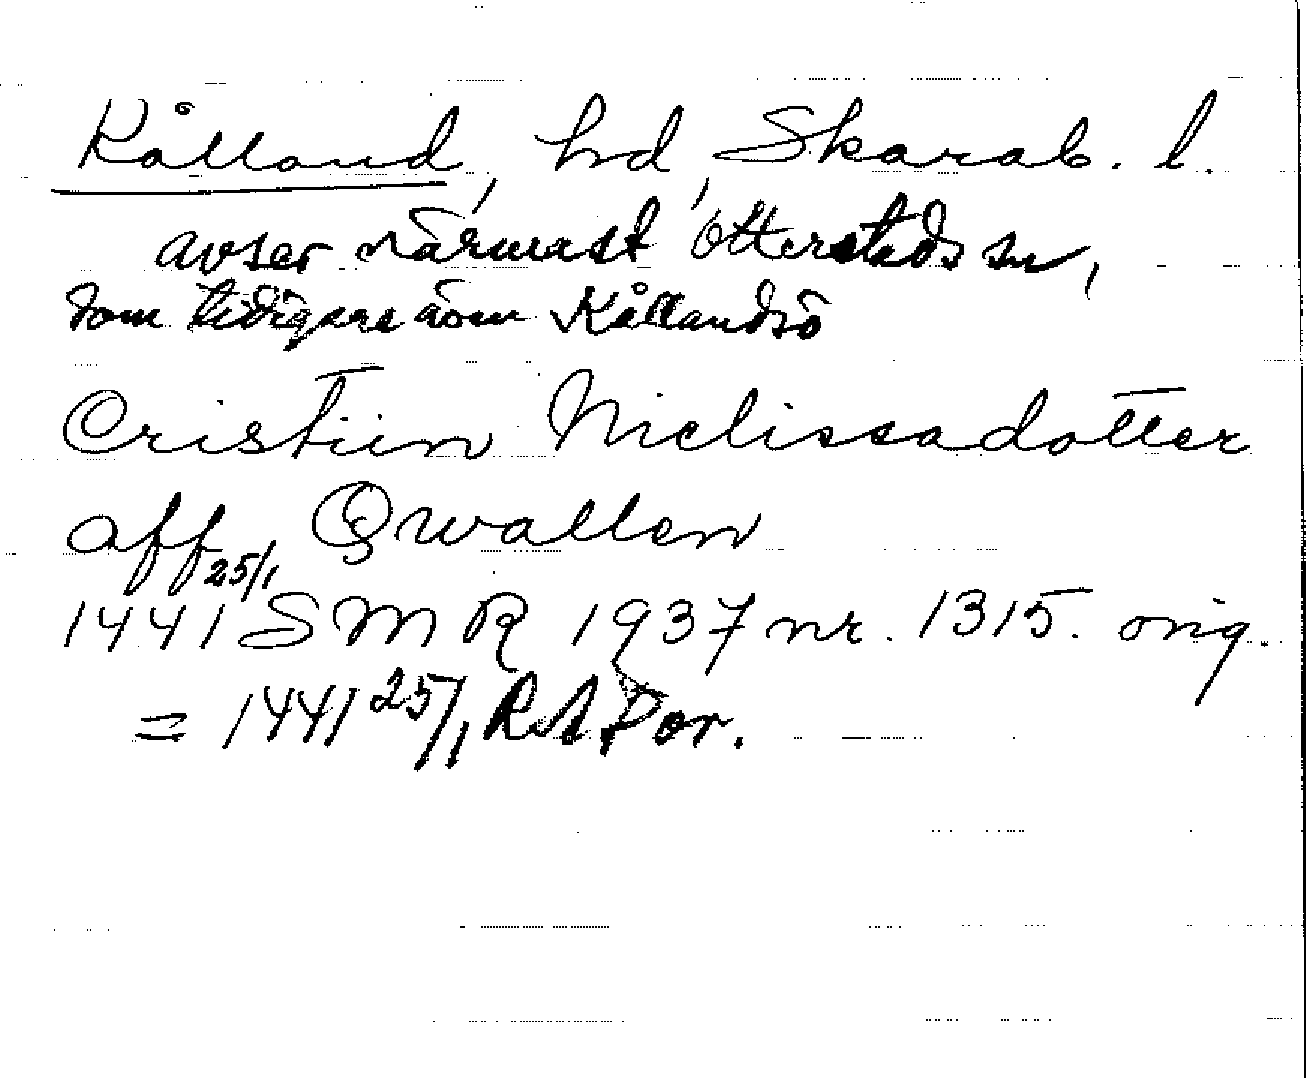 Kålland, hd, Skarab. l.
avser närmast Otterstads sn,
som tidigare även Kållandsö
Cristiin Niclissadotter
aff Qwallen
25/1
1441 SMR 1937 nr. 1315. orig.
= 1441 25/1 RA Por.